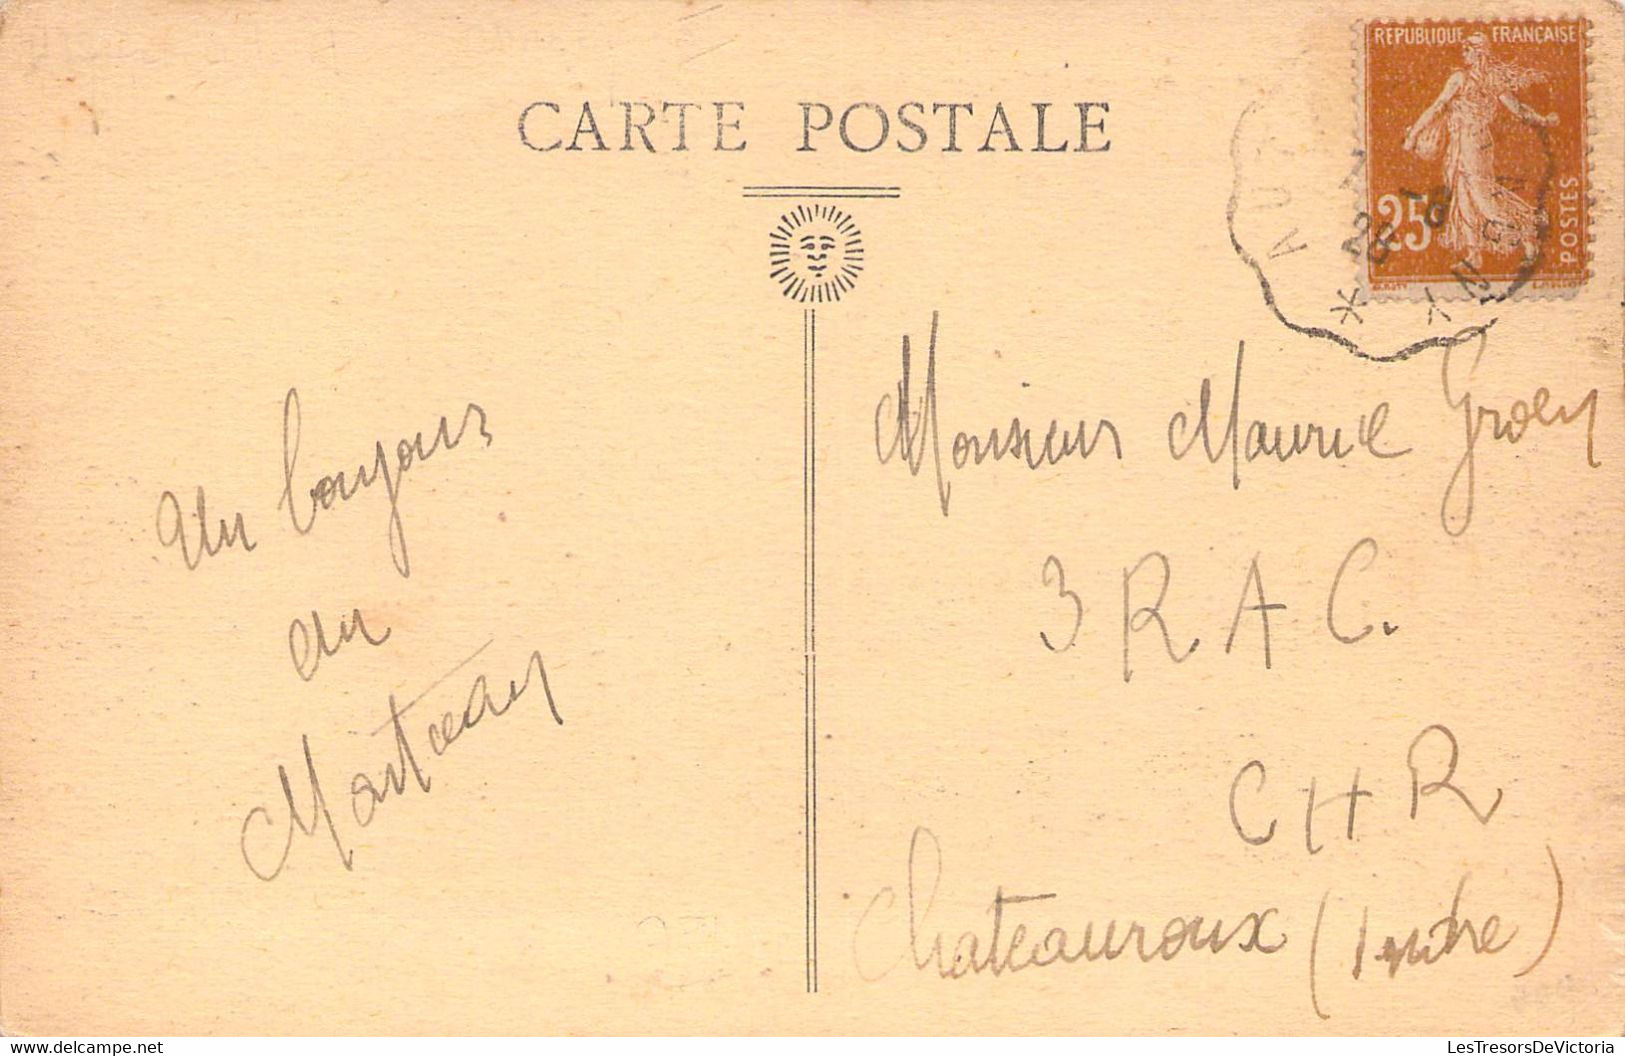 CARTE POSTALE
REPUBLIQUE FRANÇAISE
25
POSTES
Un bonjour
du
Monsieur Maurice
3 R A C.
C H R
Chateauroux (Indre)
LesTresorsDeVictoria
www.delcampe.net